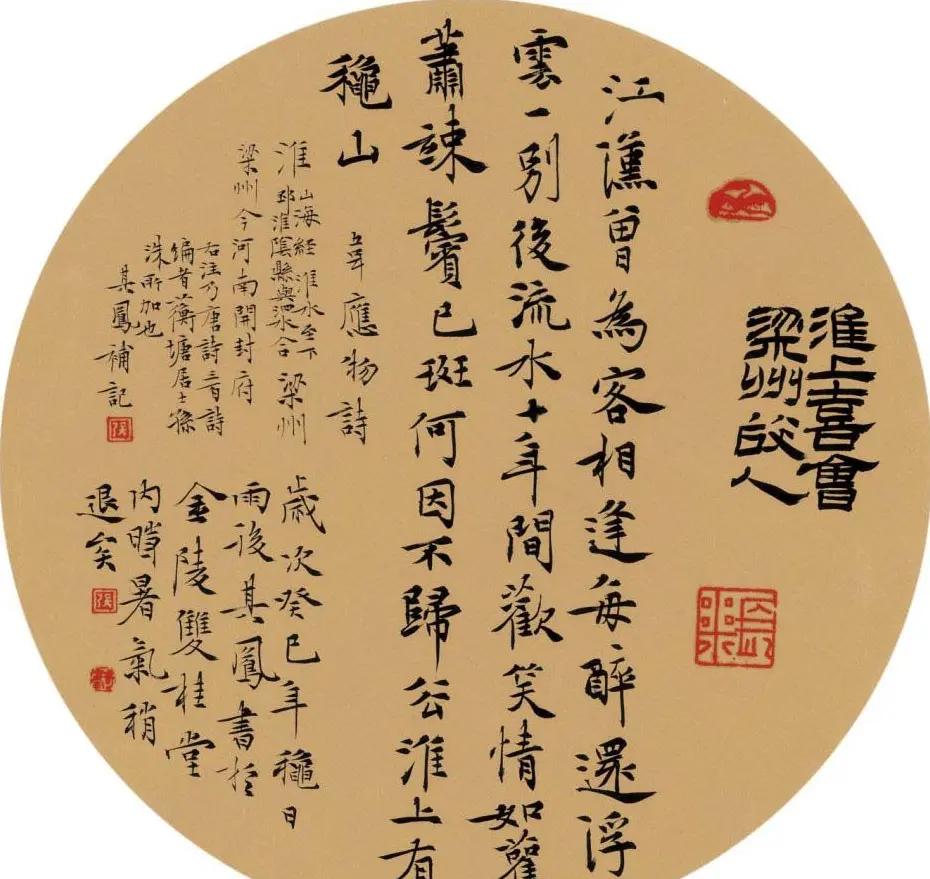 淮上喜會
梁州故人
江漢曾為客相逢每醉還浮
雲一別後流水十年間歡笑情如舊
蕭疎鬢已斑何因不歸公淮上有
龝山
韋應物詩
淮 山海經淮水至下
邳淮陰縣與合 梁州
梁州今河南開封府
右注乃唐詩三百詩
編者蘅塘居士孫
洙所加也
其鳳補記
張
歲次癸巳年龝日
雨後其鳳書於
金陵雙桂堂
內時暑氣稍
退矣
張